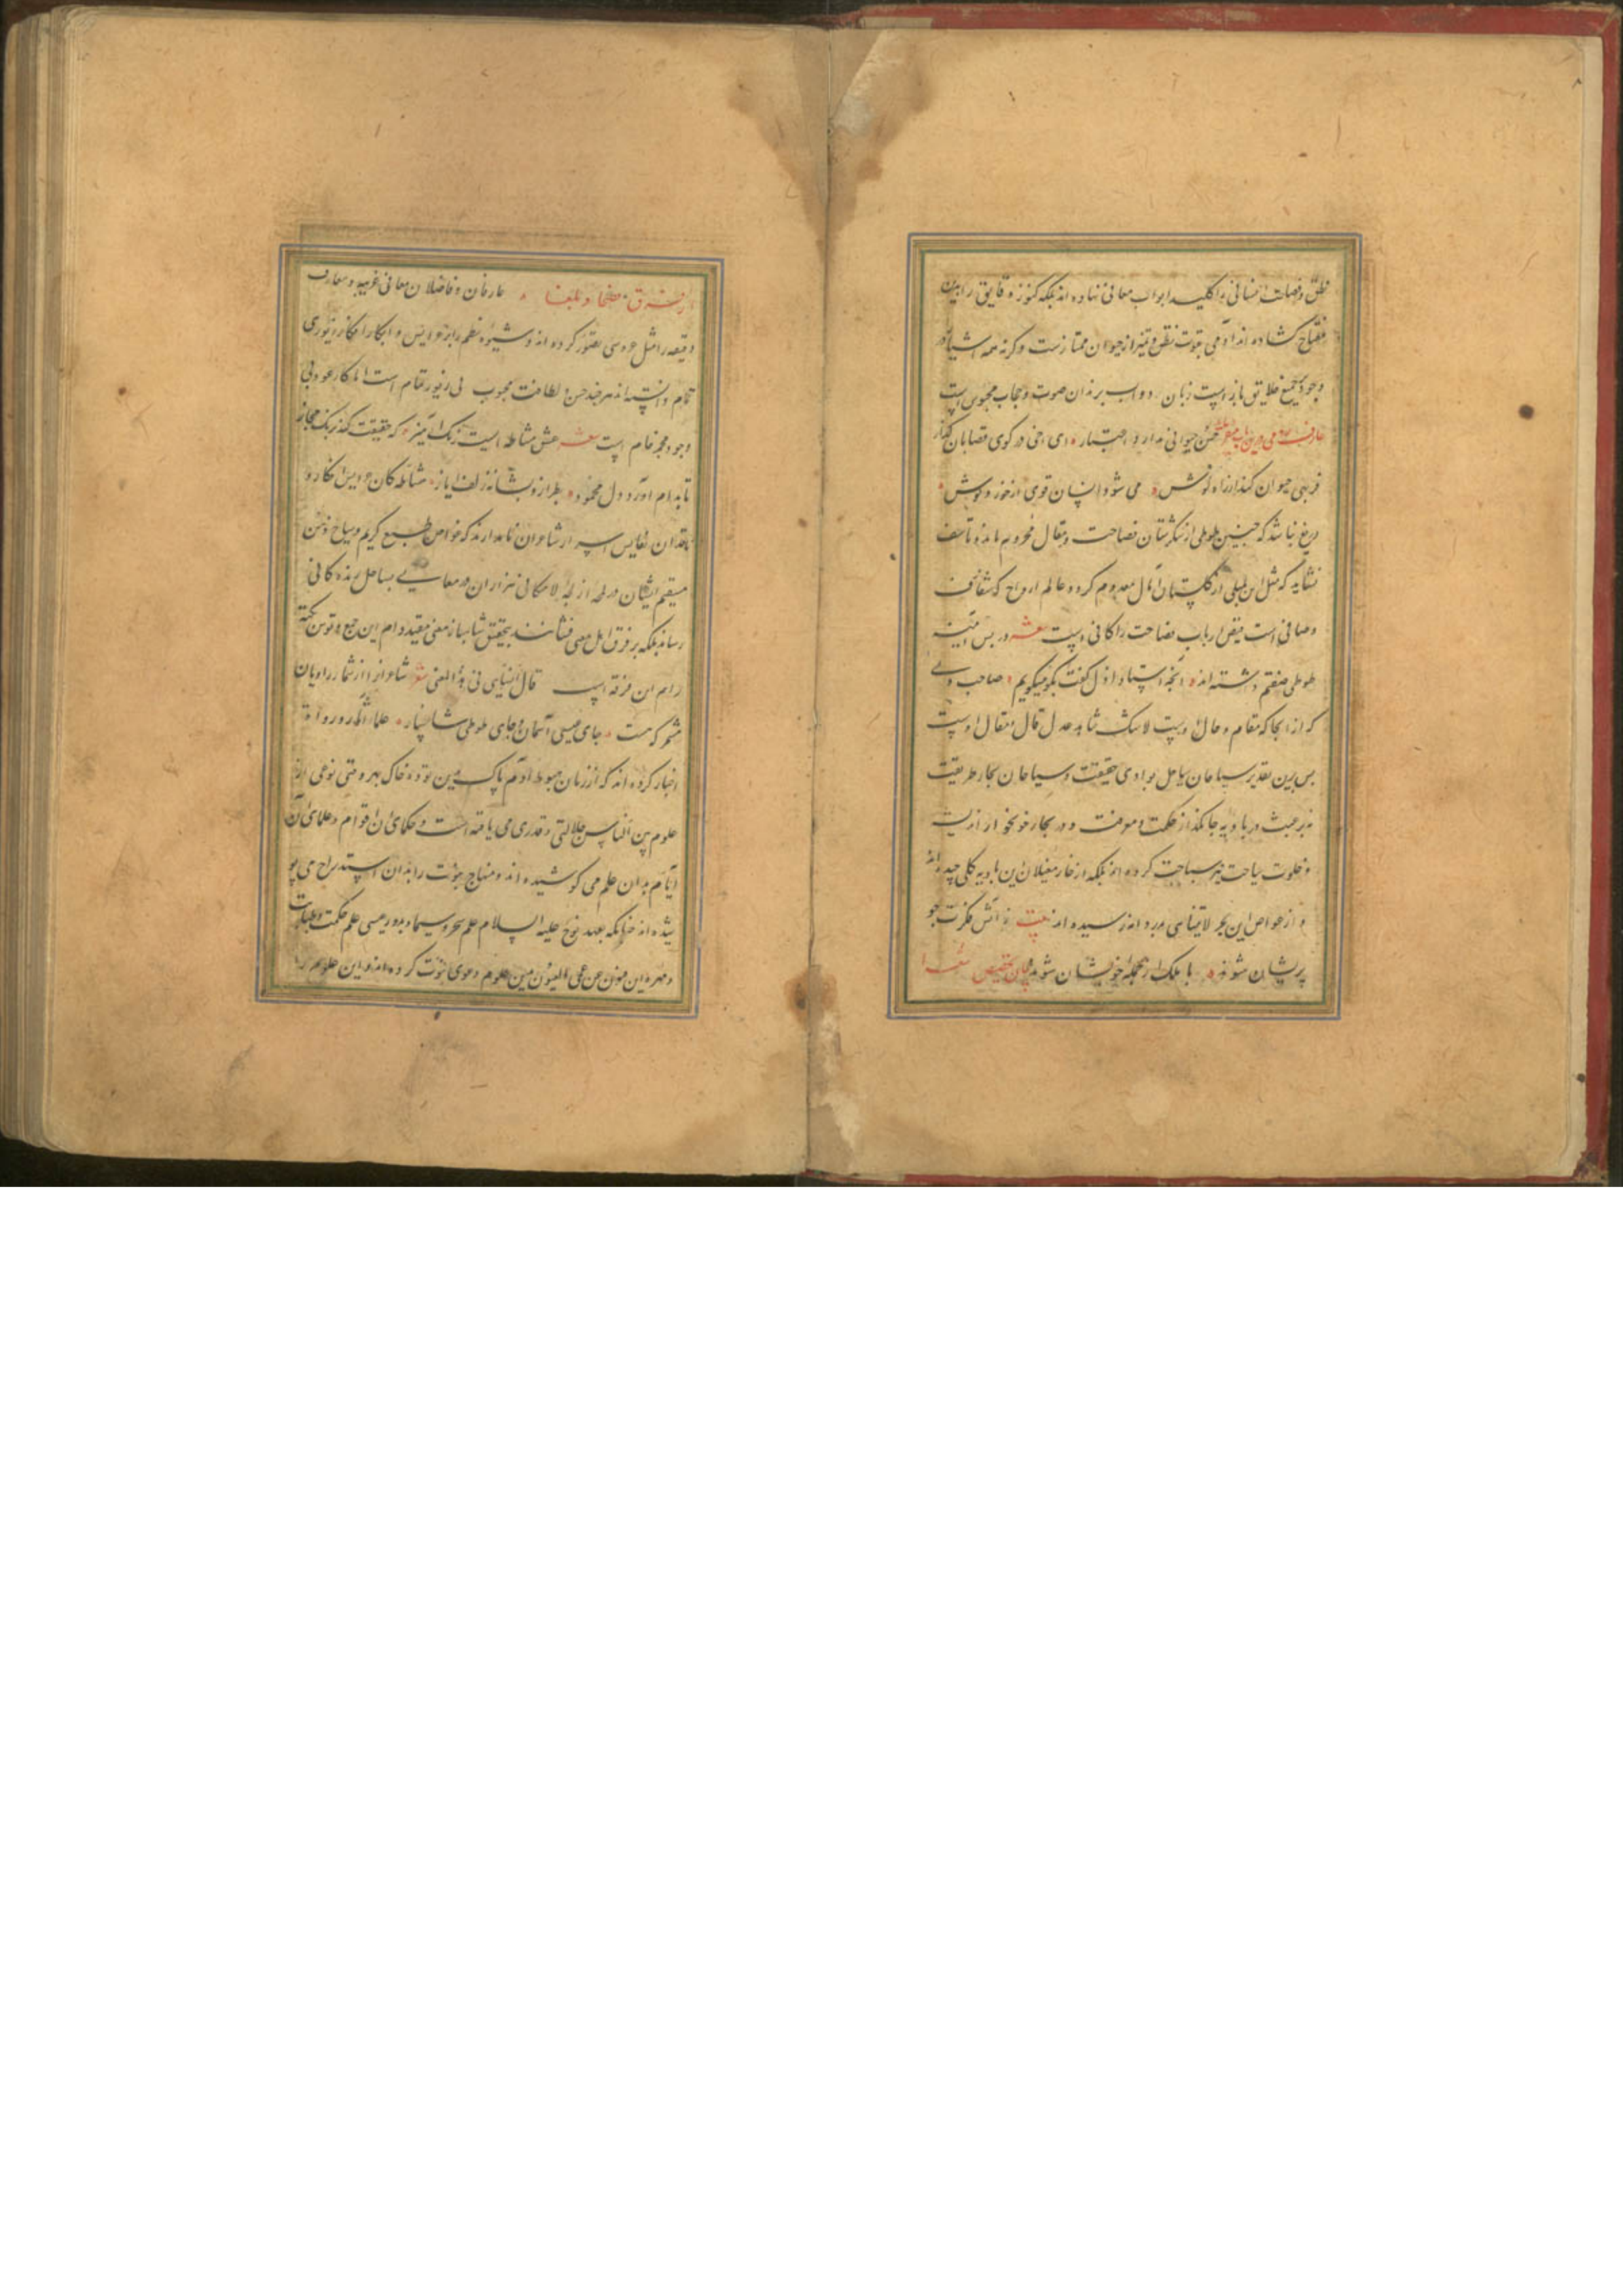 نطق و فصاحت انسانی را کلید ابواب معانی نهاده‌اند بلکه کنوز دقایق را بدین
مفتاح گشاده‌اند آدمی بقوت نطق و تمیز از حیوان ممتازست و کرنه همه اشیا را در
وجود جمیع خلایق بازاست زبان دواب برندان صوت و حجاب محبوس است
عارف می درین باب حسن حیوانی ندارد اعتبار ای اخی در کوی قصابان گذار
فربهی حیوان کند از راه نوش می شود انسان قوی از خوز و گوش
دریغ نباشد که چنین طوطی از شکرستان فصاحت و مقال محروم ماند و تاسف
نشاید که مثل این بلبلی از گلستان آمال معدوم گردد عالم ارواح که شفاف
و صافی است فیض ارباب فصاحت را کافی است شعر در پس آینه
طوطی صفتم داشته‌اند آنچه استاد ازل گفت بگو میگویم صاحب دلی
که از آنجا که مقام و حال اوست لاشک شاهد عدل قال و مقال اوست
پس برین تقدیر سیاحان بوادی حقیقت و سباحان بحار طریقت
نه بر عبث در بادیه جانگداز حکمت و معرفت و در بحار خونخوار اندیشه
و خلوت سیاحت نیز سباحت کرده‌اند بلکه از خار مغیلان این بادیه گلی چیده‌اند
و از غواصی این بحر لایتناهی بدردانه رسیده‌اند بیت ز آتش فکرت چو
پریشان شوند با ملک از جمله خویشان شوند بیان تخصیص شعرا
از فرق فصحا و بلغا عارفان و فاضلان معانی غریبه و معارف
دقیقه را مثل عروسی تصور کرده‌اند و شیوه نظم را بر عرایس و ابکار افکار زیوری
تمام دانسته‌اند هرچند حسن و لطافت محبوب بی زیور تمام است اما کار عود بی
وجود مجمر خام است شعر عشق مشاطه ایست رنگ آمیز که حقیقت کند برنگ مجاز
تا بدام آورد دل محمود بطرازد بشانه زلف ایاز مشاطگان عرایس افکار و
ناقدان نفایس اسرار شاعران نامدارند که غواص طبع کریم و سیاح ذهن
مستقیم ایشان در لحظه از لجه لامکانی هزاران در معانی بساحل زندگانی
رساند بلکه بر فرق اهل معنی فشانند بتحقیق شاهباز معنی مقید دام این جمع و توسن نکته
رام این فرقه است قال السنایی فی هذا المعنی شعر شاعران را از شمار راویان
مشمر که هست جای عیسی آسمان و جای طوطی شاخسار علما آثار و رواة
اخبار کرده‌اند که از زمان هبوط آدم پاک بدین توده خاک بهر وقتی نوعی از
علوم بین الناس جلالتی و قدری می یافته است و حکمای آن اقوام و علمای آن
ایام بدان علم می کوشیده‌اند و منهاج نبوت را بدان استدراج می پو
شیده‌اند چنانکه بعهد نوح علیه السلام علم سحر و سیمیا و بدور عیسی علم حکمت و طبابت
و مهره این فنون عن عمی العیون بدین علوم دعوی نبوت کرده‌اند و این علوم را